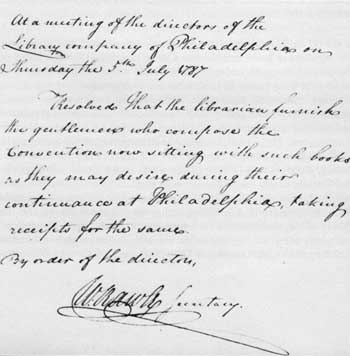 At a meeting of the directors of the
Library company of Philadelphia on
Thursday the 5th July 1787
Resolved That the librarian furnish
the gentlemen who compose the
Convention now sitting with such books
as they may desire during their
continuance at Philadelphia, taking
receipts for the same.
By order of the directors,
W. Rawle Secretary.